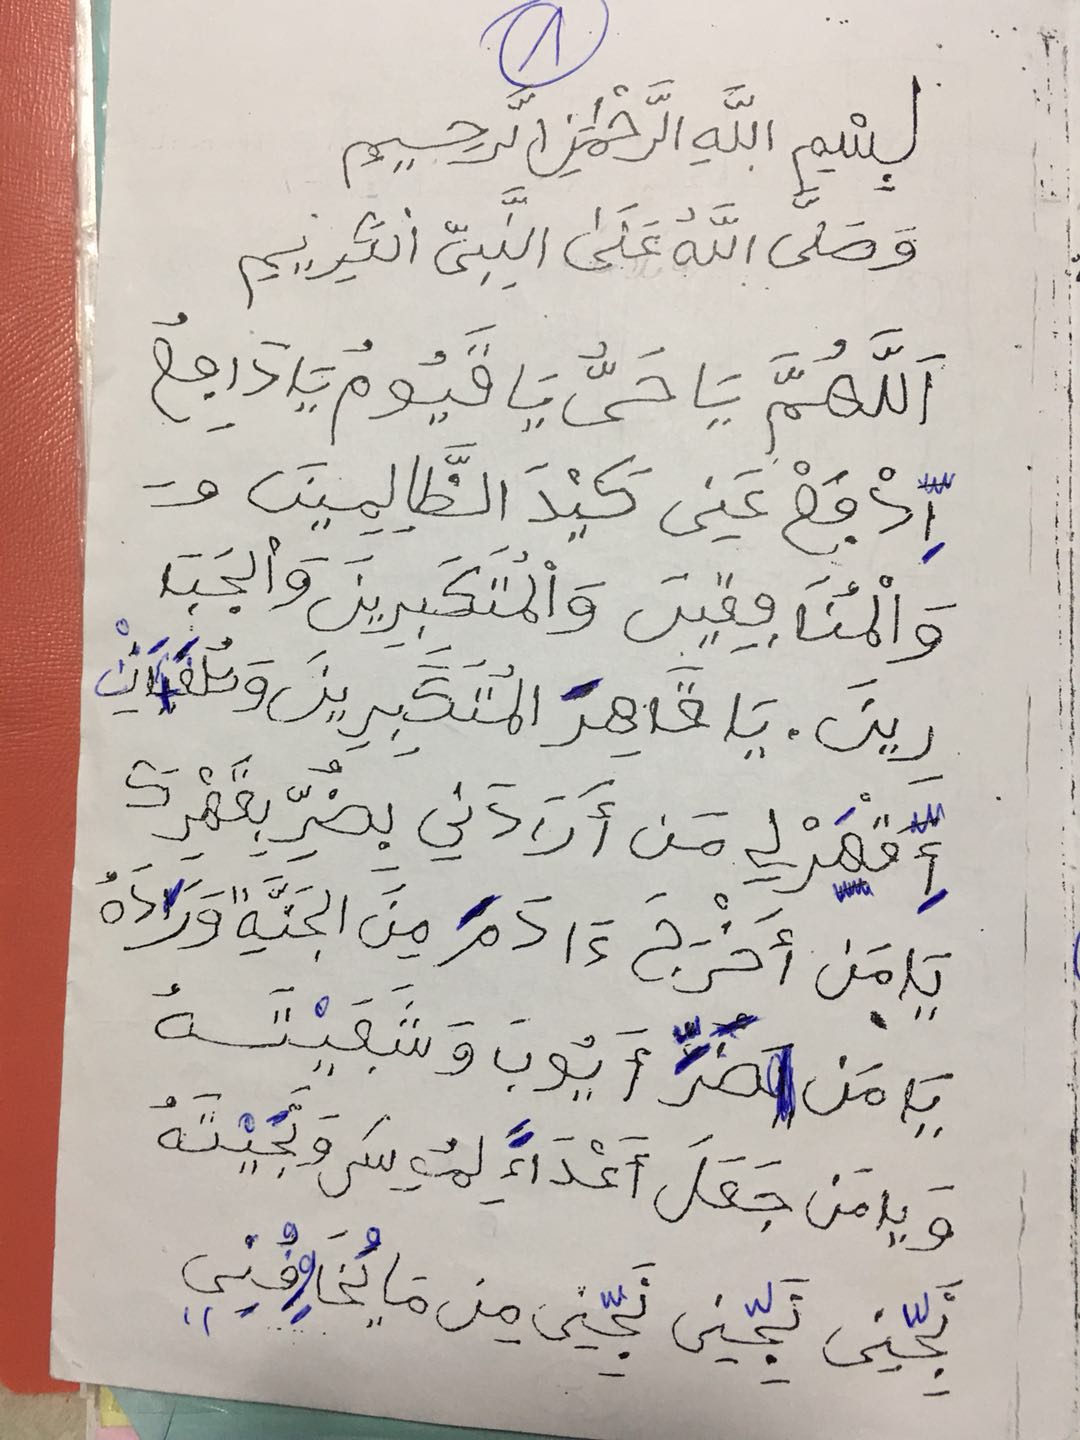 ١
بِسْمِ اللَّهِ الرَّحْمَٰنِ الرَّحِيمِ
وَصَلَّى اللَّهُ عَلَىٰ النَّبِيِّ الْكَرِيمِ
اَللَّهُمَّ يَا حَيُّ يَا قَيُّومُ يَا دَافِعُ
اِدْفَعْ عَنِّي كَيْدَ الظَّالِمِينَ وَ
وَالْمُنَافِقِينَ وَالْمُتَكَبِّرِينَ وَالْجَبَا
رِينَ . يَا قَاهِرَ الْمُتَكَبِّرِينَ وَ
أَقْهَرْ لِي مَن أَرَادَنِي بِضُرٍّ بِقَهْرِكَ
يَا مَن أَخْرَجَ ءَادَمَ مِنَ الْجَنَّةِ وَرَادَهُ
يَا مَن ضَرَّ أَيُّوبَ وَشَفَيْتَهُ
وَيَا مَن جَعَلَ أَعْدَاءً لِمُوسَى وَنَجَّيْتَهُ
نَجِّنِي نَجِّنِي نَجِّنِي مِن مَا